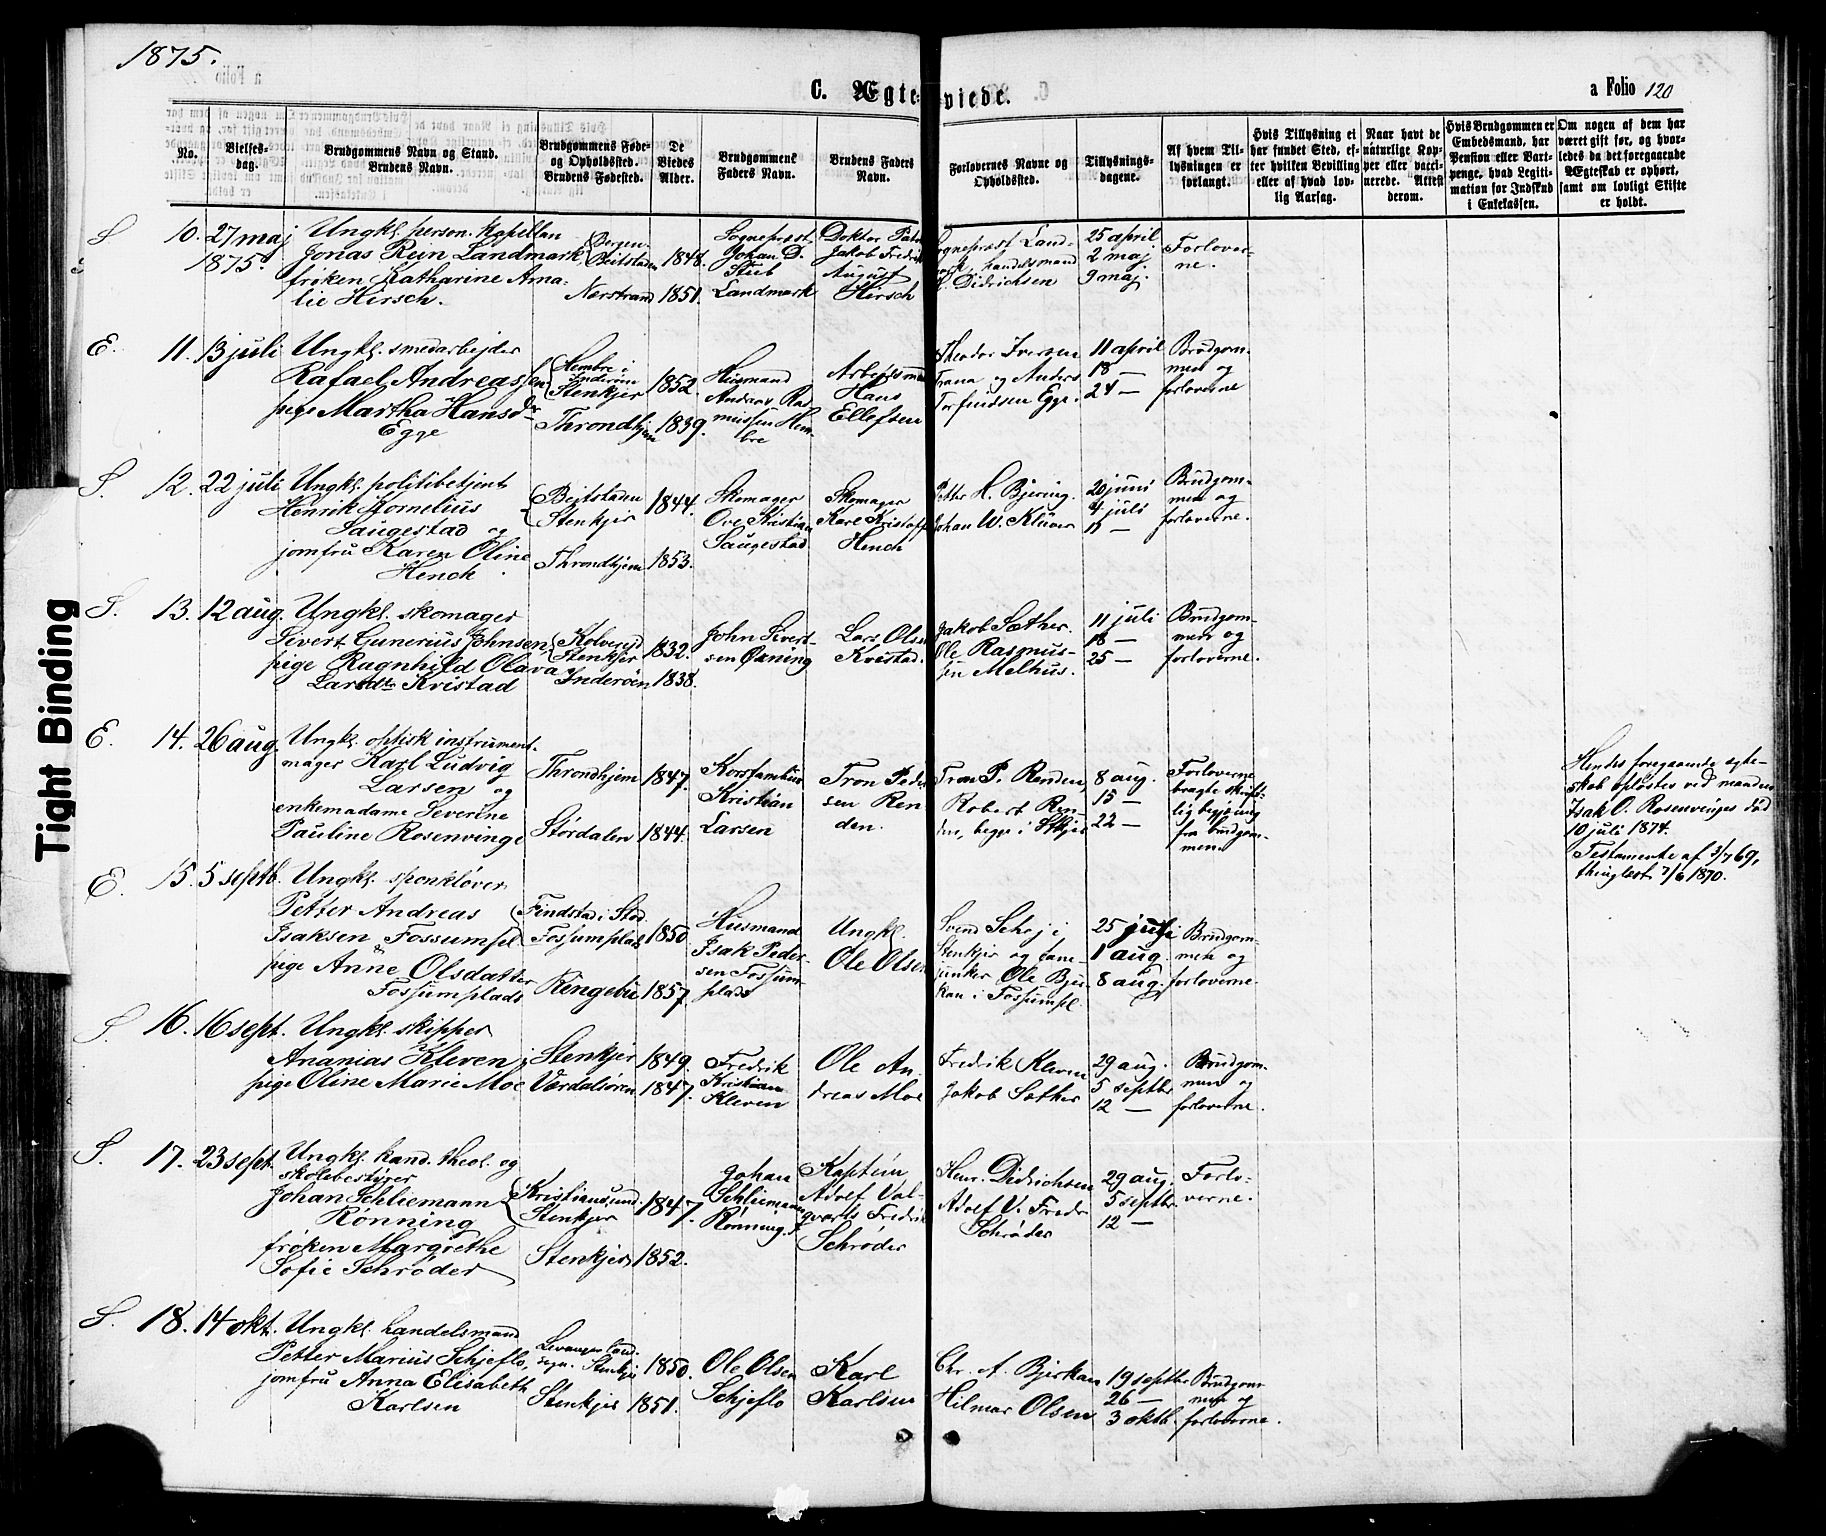 1875.
C. Ægteviede.
a Folio 120
No.
Vielses-
dag.
Brudgommens Navn og Stand.
Brudens Navn.
Brudgommens Føde-
og Opholdssted.
Brudens Fødested.
De
Viedes
Alder.
Brudgommens
Faders Navn.
Brudens Faders
Navn.
Forlovernes Navne og
Opholdssted.
Tillysnings-
dagene.
Af hvem Til-
lysningen er
forlangt.
Hvis Tillysning ei
har fundet Sted, ef-
ter hvilken Bevilling
eller af hvad lov-
lig Aarsag.
Naar havt de
naturlige Kop-
per eller vacci-
nerede. Attest
derom.
Hvis Brudgommen er
Embedsmand, har
Pension eller Vart-
penge, hvad Legiti-
mation for Indskud
i Enkekassen.
Om nogen af dem har
været gift før, og hvor-
ledes da det foregaaende
Ægteskab er ophørt,
samt om lovligt Skifte
er holdt.
S 10. 27 maj
1875.
Ungkl. person. Kapellan
Jonas Rein Landmark
frøken Katharine Ama-
lie Hirsch.
Bergen.
Beitstaden
Nærstrand
1848.
1851.
Sogneprest
Johan D.
Stub
Landmark
Doktor
Jakob Fredrik
August
Hirsch
Sogneprest Land-
mark, handelsmand
H. Didrichsen
25 april
2 maj
9 maj.
Forlover-
ne.
E. 11. 13 juli
Ungkl. smedarbejder
Rafael Andreassen
pige Martha Hansdr
Egge
Hembre i
Inderøen
Stenkjer
Throndhjem
1852
1839.
Husmand
Andreas Ras-
mussen Hem-
bre
Arbejdsmand
Hans
Ellefsen
Theodor Iversen
Trana og Anders
Torfindsen Egge.
11 april
18 —
24 —
Brudgom-
men og
forloverne
S. 12. 22 juli
Ungkl. politibetjent
Henrik Kornelius
Saugestad og
jomfru Karen Oline
Henck.
Beitstaden
Stenkjer
Throndhjem
1844.
1853.
Skomager
Ove Kristian
Saugestad
Skomager
Karl Kristoff
Henck
Petter H. Bjering.
Johan W. Klüver
20 juni
4 juli
11 —
Brudgom-
men og
forloverne.
S. 13. 12 aug.
Ungkl. skomager
Sivert Gunerius Johnsen
pige Ragnhild Olava
Larsdtr Kvistad
Kolvereid
Stenkjer
Inderøen
1832.
1838.
John Sivert-
sen Øxning
Lars Olsen
Kvistad.
Jakob Sæther.
Ole Rasmus-
sen Melhus.
11 juli
18 —
25 —
Brudgom-
men og
forloverne.
E. 14. 26 aug.
Ungkl. optisk instrument-
mager Karl Ludvig
Larsen og
enkemadame Severine
Pauline Rosenvinge
Throndhjem
Størdalen
1847.
1844.
Kristian
Larsen
Tron Peder-
sen Ren-
den.
Tron P. Renden,
Robert Ren-
den, begge i Stkjer
8 aug.
15 —
22 —
Forloverne
bragte skrift-
lig begjæring
fra brudgom-
men.
Hendes foregaaende ægte-
skab opløstes ved manden
Isak O. Rosenvinges død
10 juli 1874.
Testamente af 3/7 69,
thinglæst 7/6 1870.
E. 15. 5 septb.
Ungkl. sponkløver
Petter Andreas
Isaksen Fossumpl.
pige Anne Olsdatter
Fossumplads
Findstad i Stod
Fossumplads
Ringebu
1850
1857.
Husmand
Isak Peder-
sen Fossum-
plads
Ungkl.
Ole Olsen
Svend Schej i
Stenkjer og
Ole Bjer-
kan i Fossumpl.
25 juli
1 aug.
8 aug.
Brudgom-
men og
forloverne.
S. 16. 16 sept.
Ungkl. skipper
Ananias Kleven
pige Oline Marie Moe
Stenkjer
Værdalsøren
1849.
1847.
Fredrik
Kristian
Kleven
Ole An-
dreas Moe
Fredrik Kleven
Jakob Sæther
29 aug.
5 septbr
12 —
Brudgom-
men og
forloverne.
S. 17. 23 sept.
Ungkl. kand. theol. og
skolebestyrer
Johan Schliemann
Rønning
frøken Margrethe
Sofie Schrøder
Kristiansund.
Stenkjer
Stenkjer
1847.
1852.
Johan
Schliemann
Rønning.
Kaptein
Adolf Val-
gvarth Fredrik
Schrøder
Henr. Didrichsen
Adolf V. Fredr.
Schrøder
29 aug.
5 septbr.
12 —
Forlo-
verne.
S. 18. 14 okt.
Ungkl. handelsmand
Petter Marius Schjeflo,
jomfru Anna Elisabeth
Karlsen
Levanger Land-
sogn. Stenkjer
Stenkjer
1850.
1851.
Ole Olsen
Schjeflo
Karl
Karlsen
Chr. A. Bjerkan
Hilmar Olsen
19 septbr
26 —
3 oktb.
Brudgom-
men og
forloverne.
Tight Binding